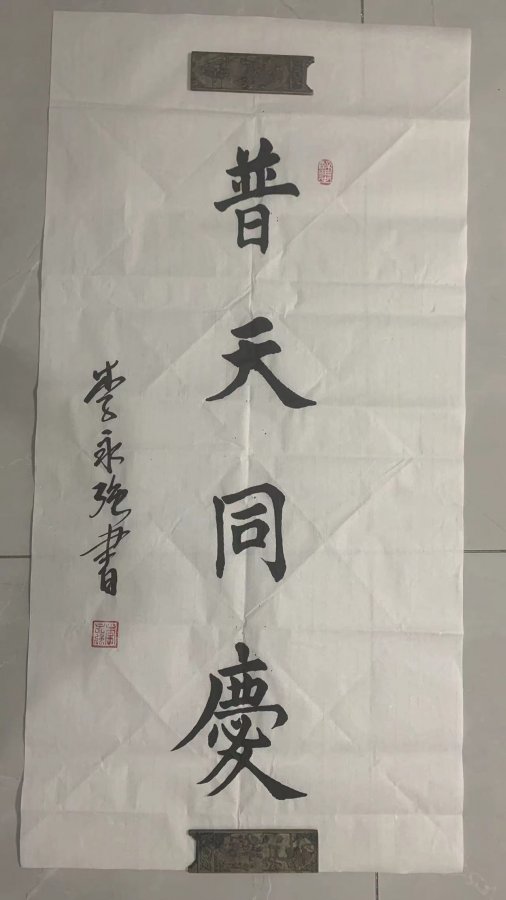 普天同慶
李永强書